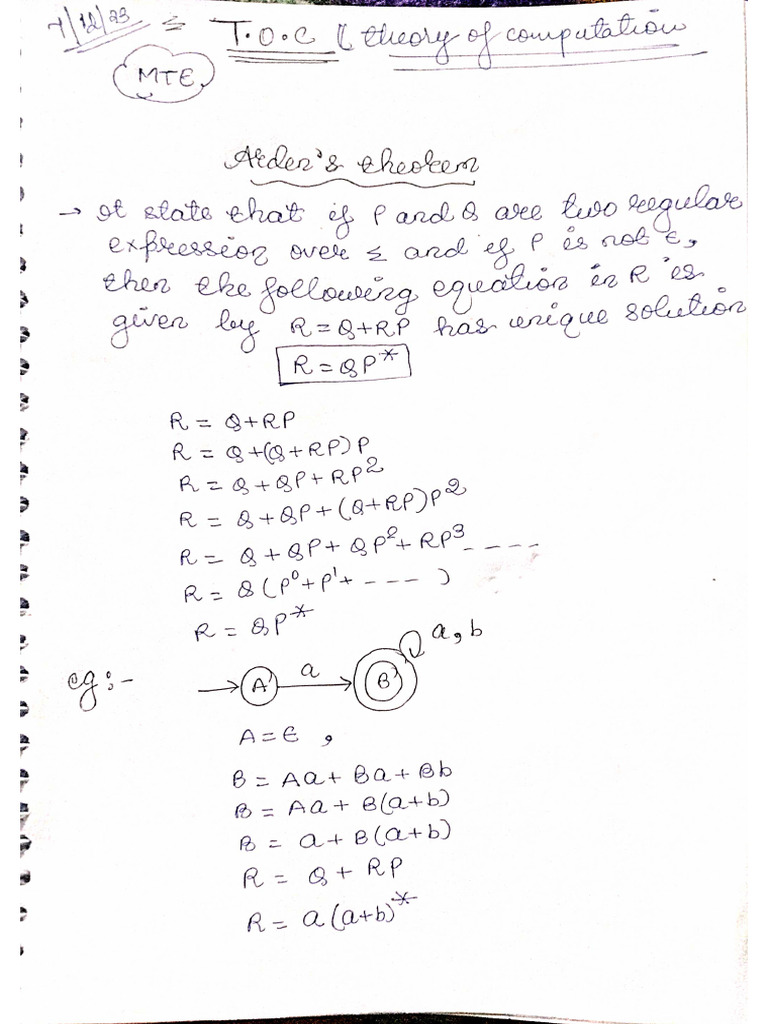 7/12/23 T.O.C ( theory of computation
MTE
Arden's theorem
→ It state that if P and Q are two regular
expression over Σ and if P is not ϵ,
then the following equation in R is
given by R = Q+RP has unique solution
R = QP*
R = Q+RP
R = Q+(Q+RP)P
R = Q+QP+RP²
R = Q+QP+(Q+RP)P²
R = Q+QP+QP²+RP³ ----
R = Q(P⁰+P¹+ --- )
R = QP*
eg:-
a, b
A a B
A = ϵ ,
B = Aa+Ba+Bb
B = Aa+B(a+b)
B = a+B(a+b)
R = Q + RP
R = a(a+b)*